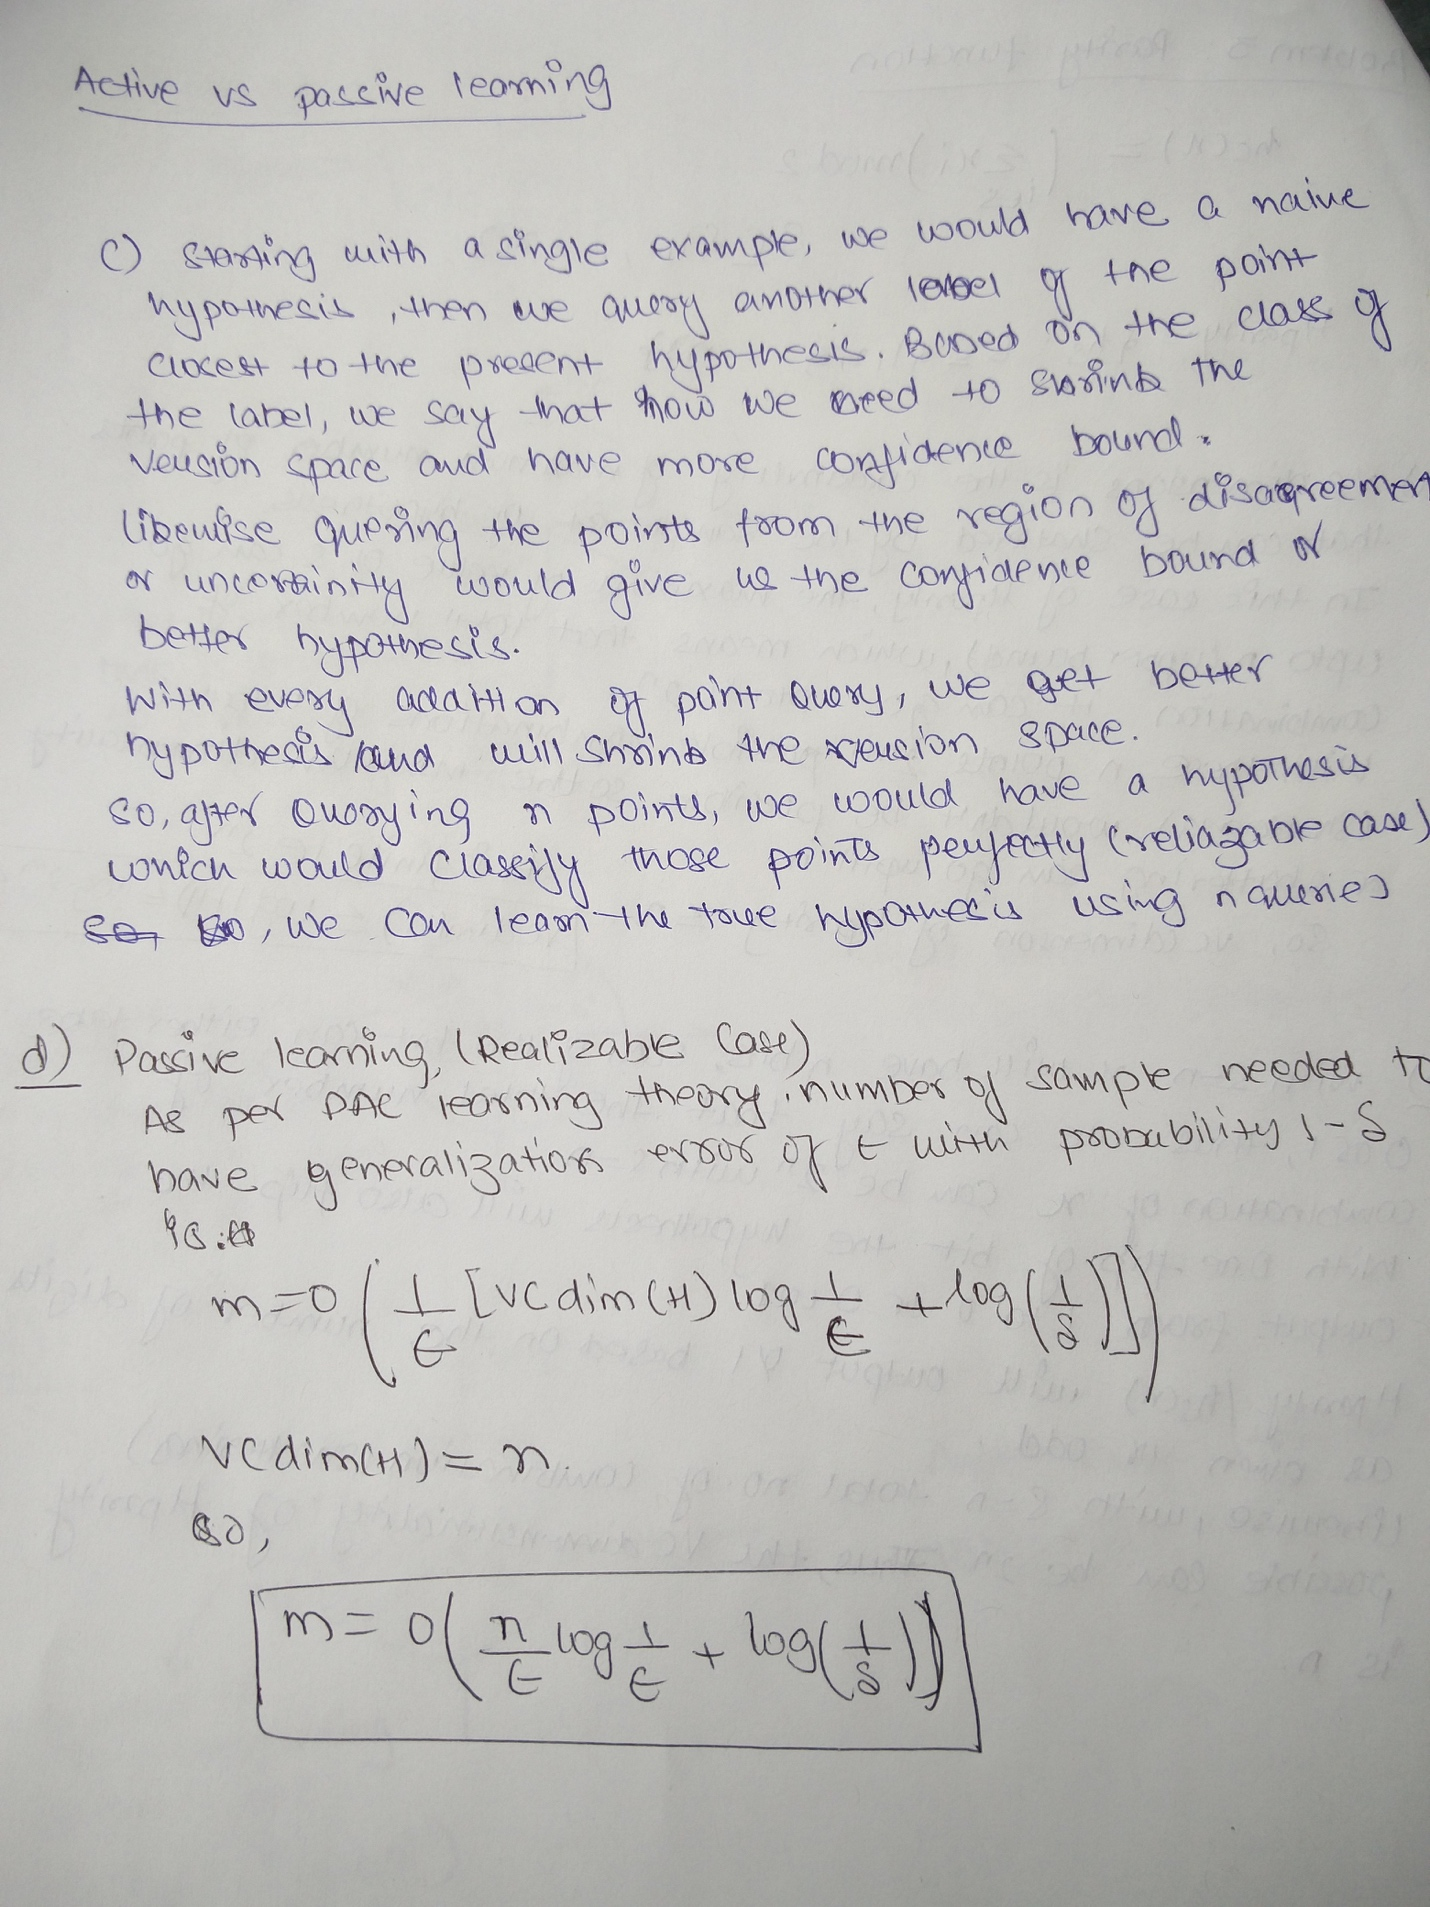 Active vs passive learning
c) starting with a single example, we would have a naive
hypothesis, then we query another label of the point
closest to the present hypothesis. Based on the class of
the label, we say that now we need to shrink the
version space and have more confidence bound.
likewise quering the points from the region of disagreement
or uncertainity would give us the confidence bound or
better hypothesis.
With every addition of point query, we get better
hypothesis and will shrink the version space.
so, after Querying n points, we would have a hypothesis
which would classify those points perfectly (reliazable case)
so, we can learn the true hypothesis using n queries
d) Passive learning, (Realizable Case)
As per PAC learning theory, number of sample needed to
have generalization error of ϵ with probability 1-δ
is:
m=O(1/ϵ [VCdim(H) log 1/ϵ + log(1/δ)])
VCdim(H) = n.
so,
m= O(n/ϵ log 1/ϵ + log(1/δ))